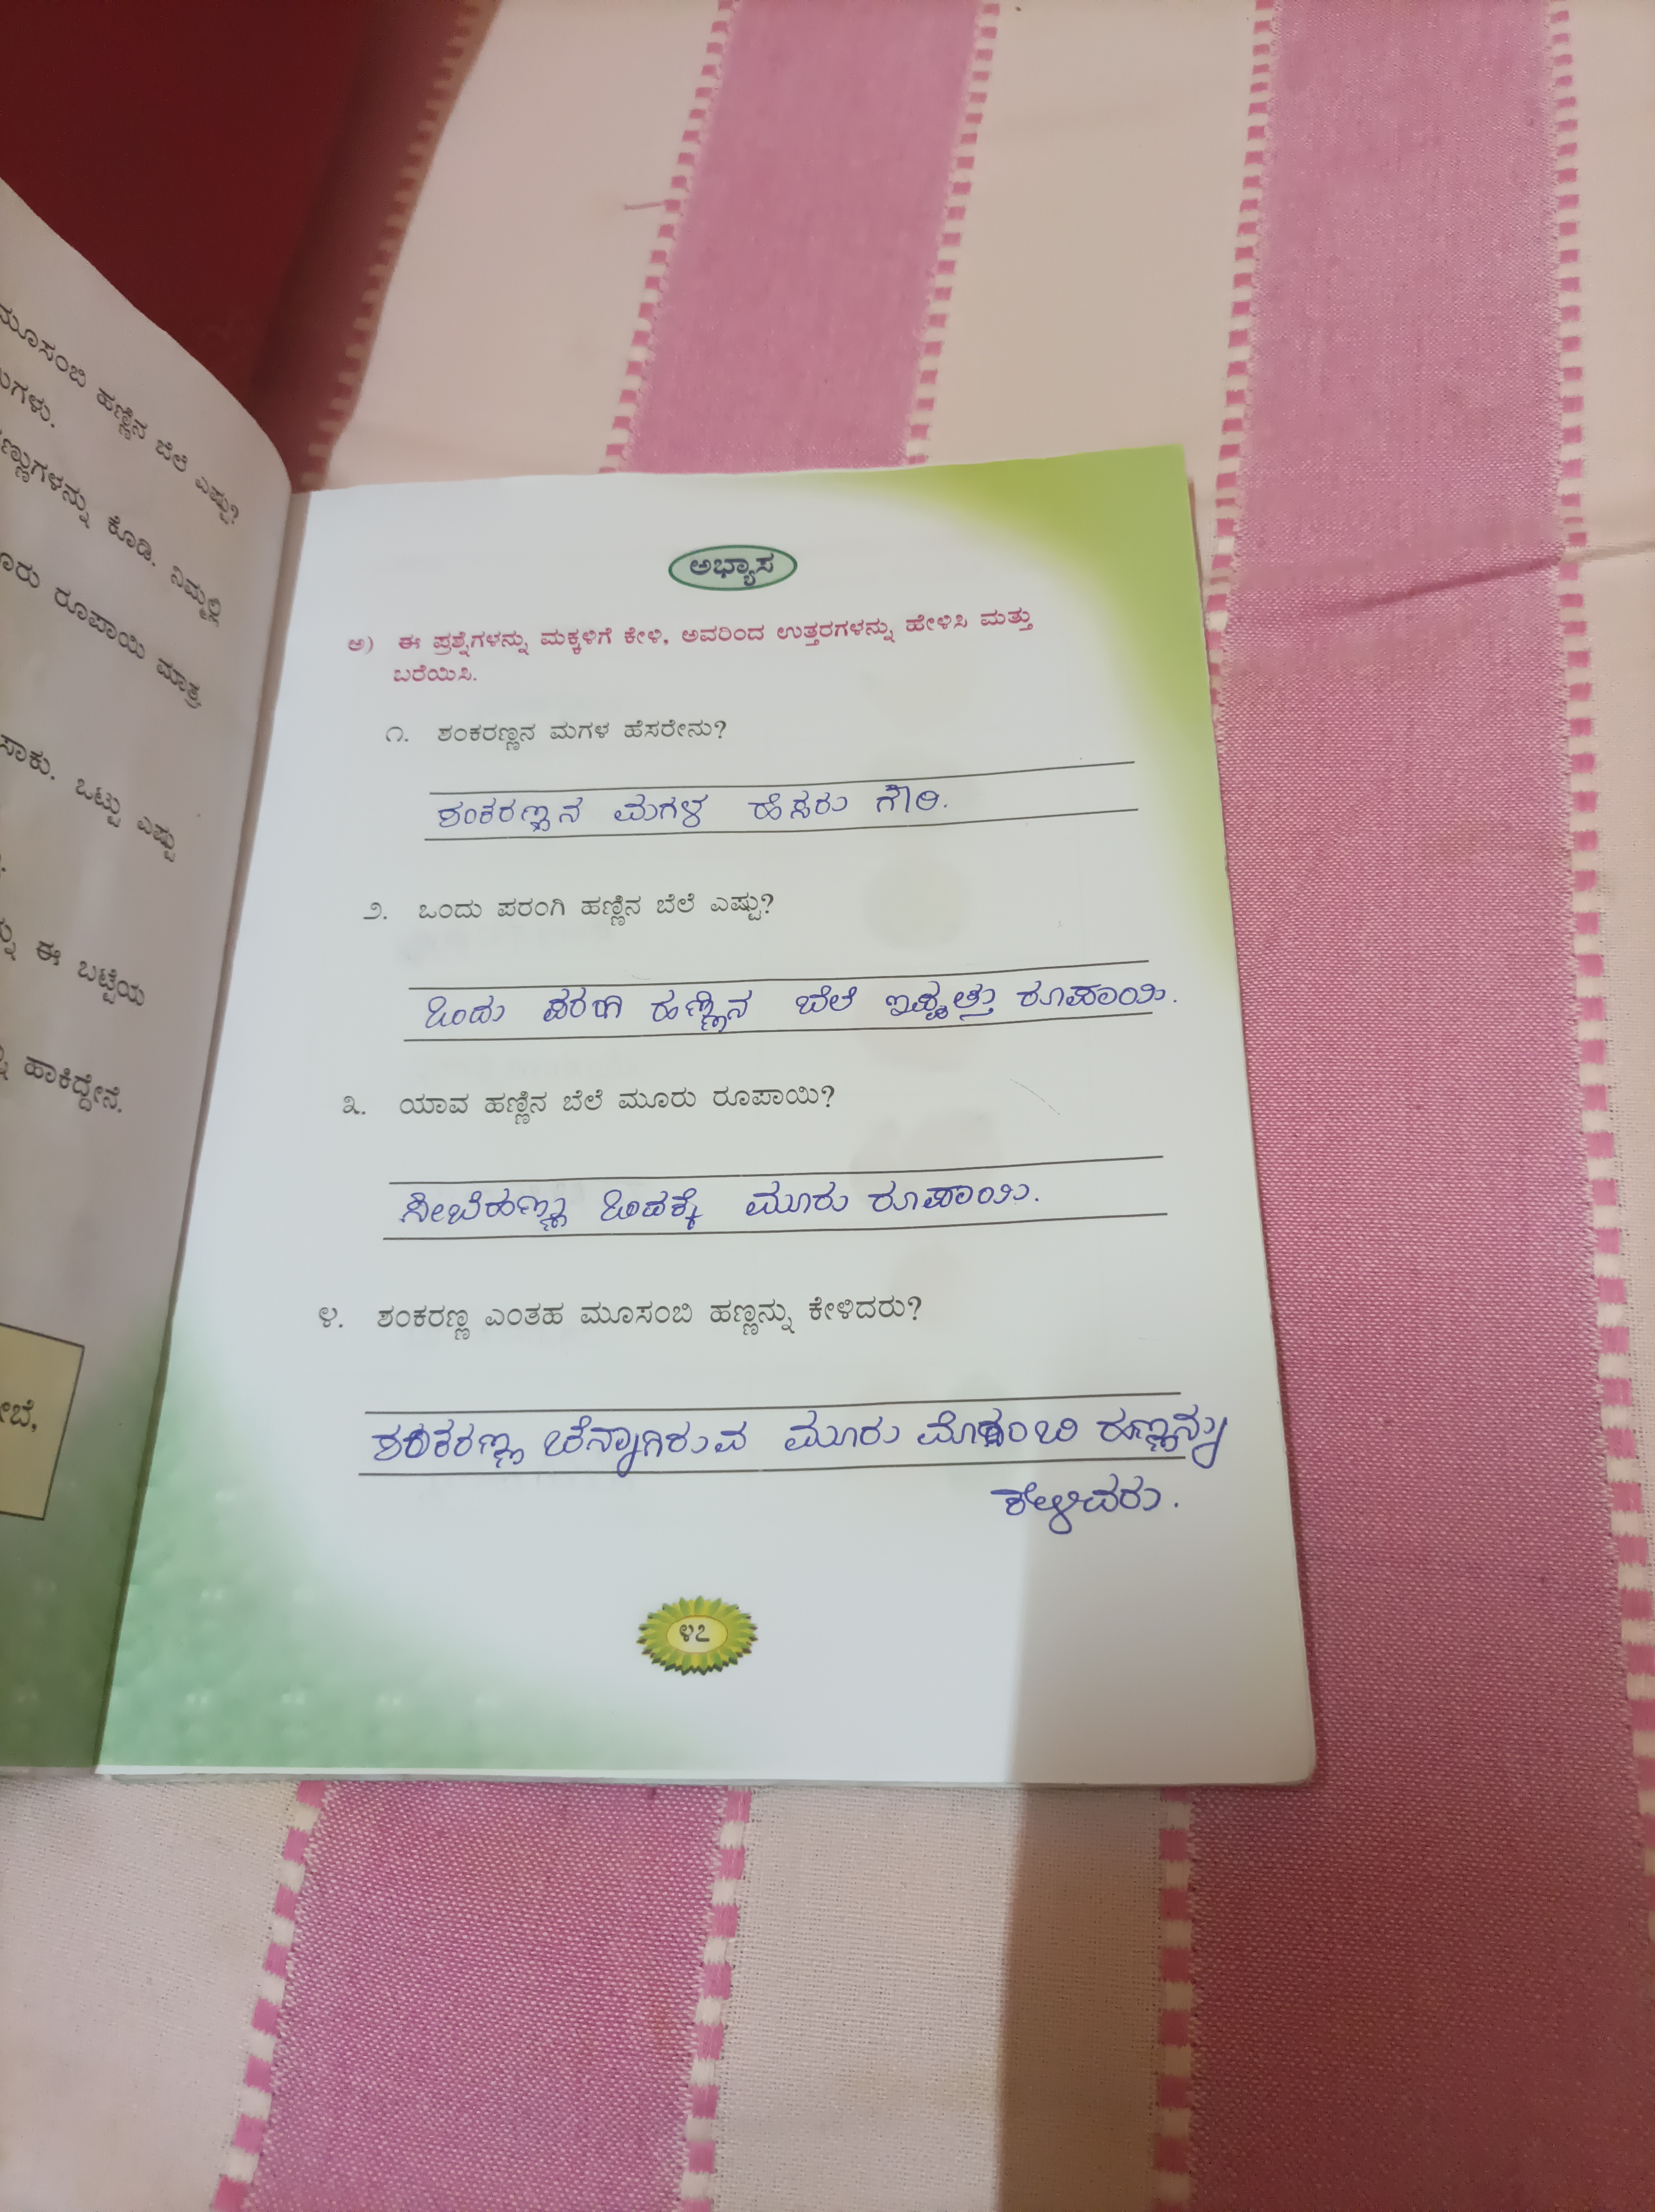 ಮೂಸಂಬಿ ಹಣ್ಣಿನ ಬೆಲೆ ಎಷ್ಟು?
ಕೊಡಿ. ನಿಮ್ಮಲ್ಲಿ
ರೂಪಾಯಿ ಮಾತ್ರ
ಸಾಕು. ಒಟ್ಟು ಎಷ್ಟು
ಈ ಬಟ್ಟೆಯ
ಹಾಕಿದ್ದೇನೆ.
ಅಭ್ಯಾಸ
ಅ) ಈ ಪ್ರಶ್ನೆಗಳನ್ನು ಮಕ್ಕಳಿಗೆ ಕೇಳಿ, ಅವರಿಂದ ಉತ್ತರಗಳನ್ನು ಹೇಳಿಸಿ ಮತ್ತು
ಬರೆಯಿಸಿ.
೧. ಶಂಕರಣ್ಣನ ಮಗಳ ಹೆಸರೇನು?
ಶಂಕರಣ್ಣನ ಮಗಳ ಹೆಸರು ಗೌರಿ.
೨. ಒಂದು ಪರಂಗಿ ಹಣ್ಣಿನ ಬೆಲೆ ಎಷ್ಟು?
ಒಂದು ಪರಂಗಿ ಹಣ್ಣಿನ ಬೆಲೆ ಇಪ್ಪತ್ತು ರೂಪಾಯಿ.
೩. ಯಾವ ಹಣ್ಣಿನ ಬೆಲೆ ಮೂರು ರೂಪಾಯಿ?
ಸೀಬೆಹಣ್ಣು ಒಂದಕ್ಕೆ ಮೂರು ರೂಪಾಯಿ.
೪. ಶಂಕರಣ್ಣ ಎಂತಹ ಮೂಸಂಬಿ ಹಣ್ಣನ್ನು ಕೇಳಿದರು?
ಶಂಕರಣ್ಣ ಚೆನ್ನಾಗಿರುವ ಮೂರು ಮೊಸಂಬಿ ಹಣ್ಣನ್ನು
ಕೇಳಿದರು.
೪೭